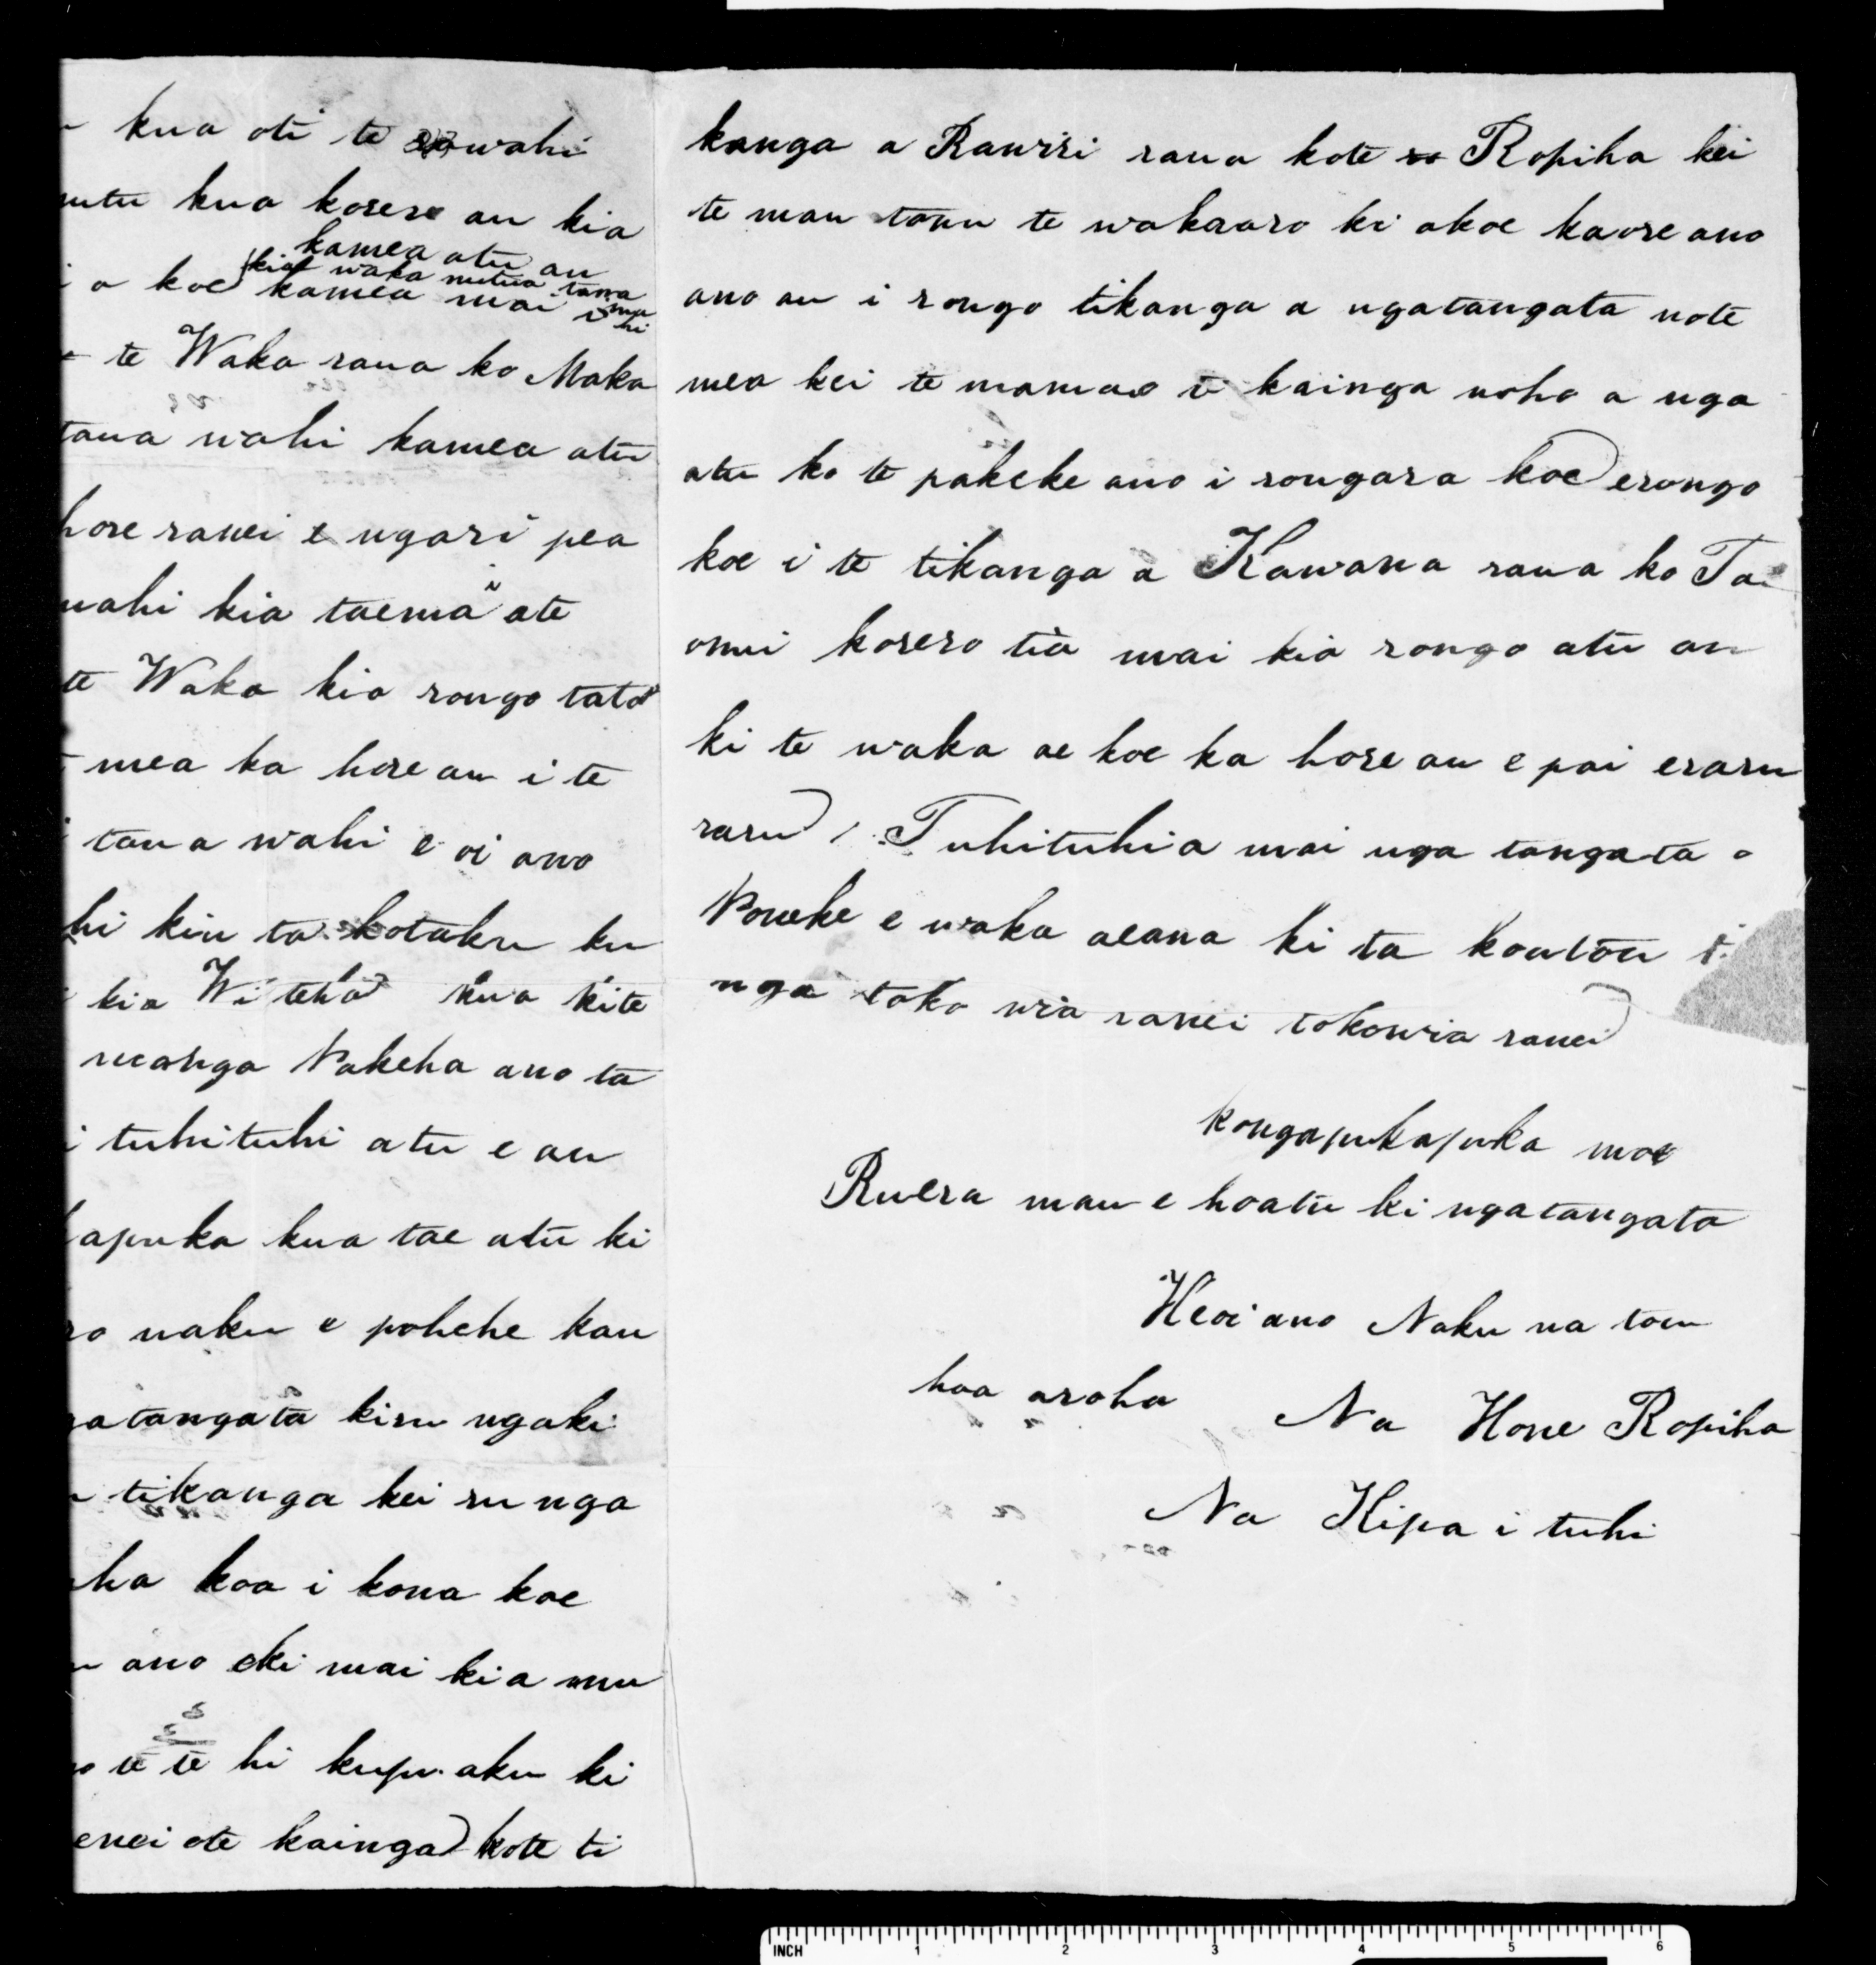 kua oti te wahi
mutu kua korero au kia
kamea atu au
kia waka mutua tana mahi
o koe kamea mai i
te Waka raua ko Maka
tana wahi kamea atu
hore ranei e ngari pea
mahi kia taema i ate
te Waka kia rongo tato
mea ka hore au i te
tau a wahi e oi ano
hi kiu ta kotaku ku
kia Wi teha kua kite
meanga Pakeha ano ta
i tuhituhi atu e au
apuka kua tae atu ki
ro naku e pohehe kau
gatangata kiru ngaki
tikanga kei runga
ha koa i kona koe
ano eki mai kia mu
o te te hi kupu aku ki
enei ote kainga kote ti
kanga a Rawiri raua kote Ropiha kei
te mau tonu te wakaaro ki akoe kaore ano
ano au i rongo tikanga a ngatangata note
mea kei te mamao i kainga noho a nga
atu ko te pakeke ano i rongara koe erongo
koe i te tikanga a Kawana raua ko Tai
onui korero tia mai kia rongo atu au
ki te waka ae koe ka hore au e pai eraru
raru Tuhituhia mai nga tangata o
Poneke e waka aeana ki ta koutou
nga toko wia ranei tokowia ranei
kongapukapuka moe
Ruera mau e hoatu ki ngatangata
Heoi ano Naku na tou
hoa aroha Na Hone Ropiha
Na Kipa i tuhi
INCH 1 2 3 4 5 6